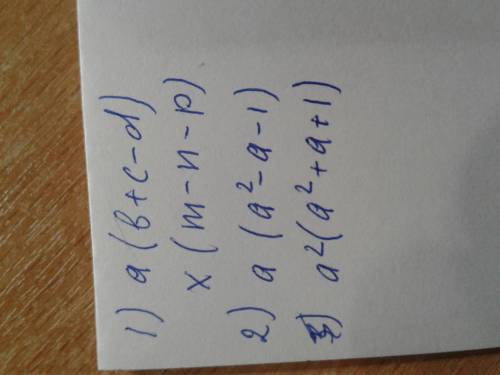 1) a (b+c-d)
x (m-n-p)
2) a (a²-a-1)
3) a²(a²+a+1)